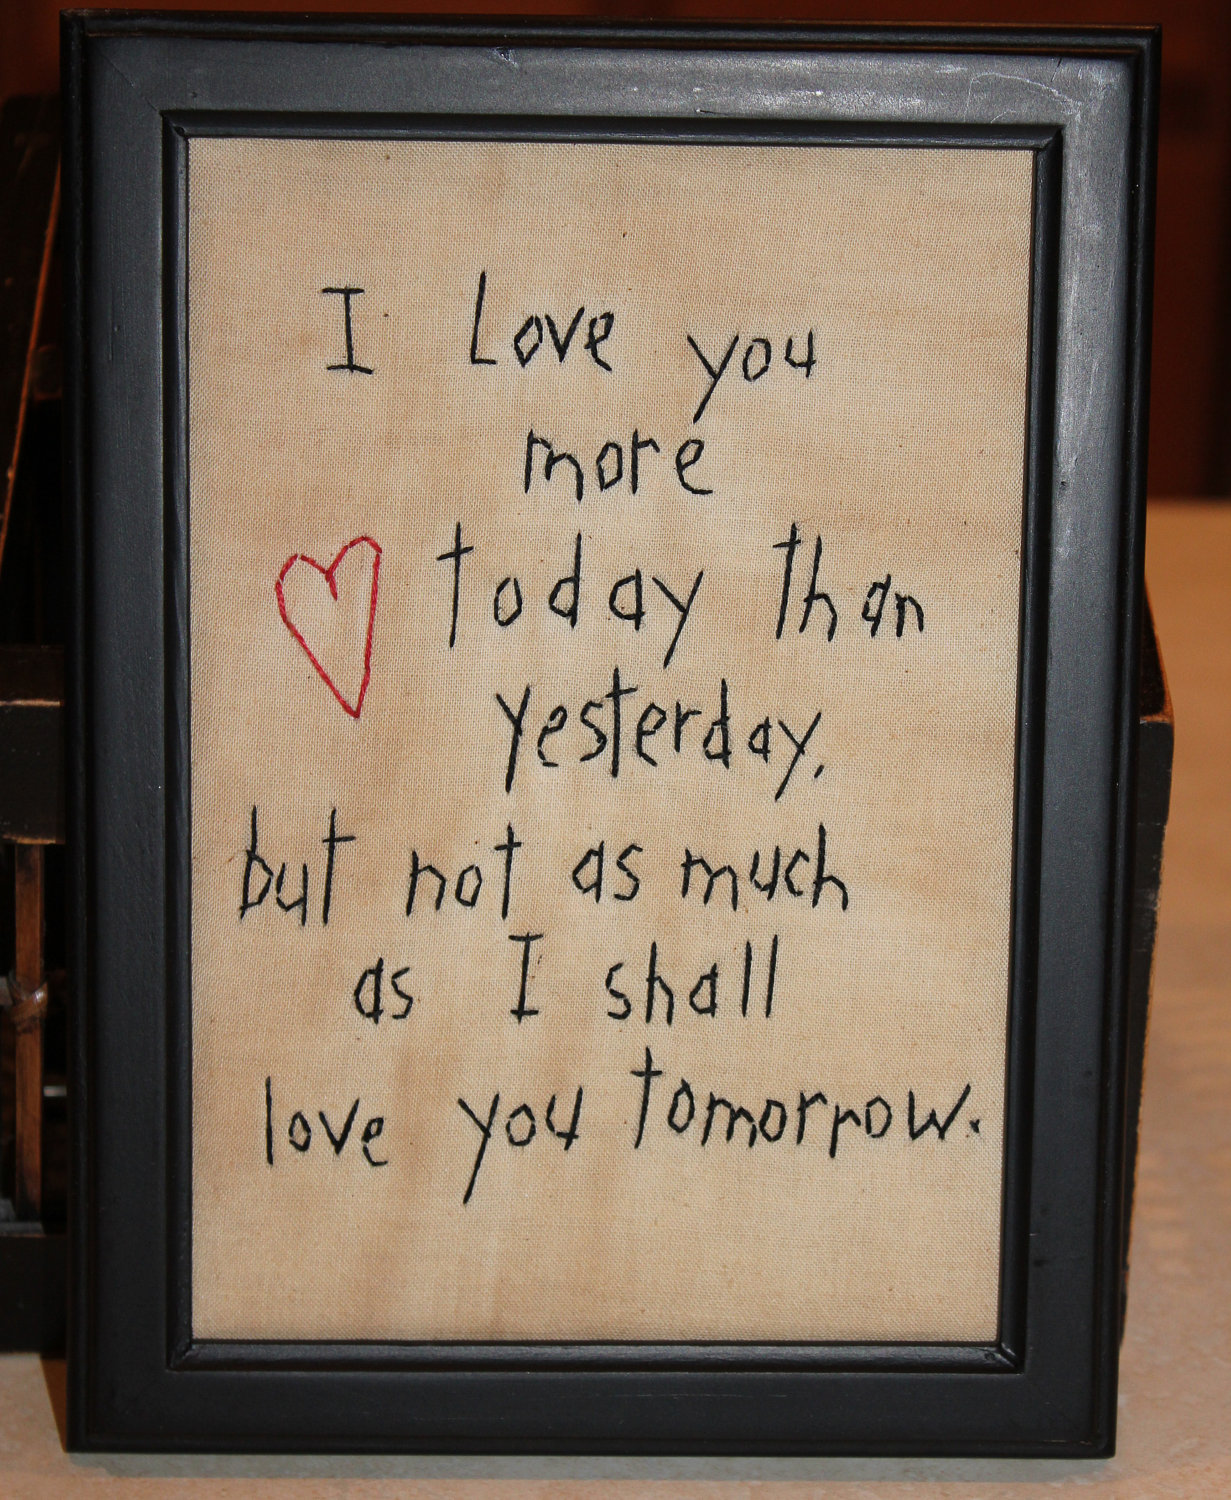 I Love you
more
today than
yesterday,
but not as much
as I shall
love you tomorrow.